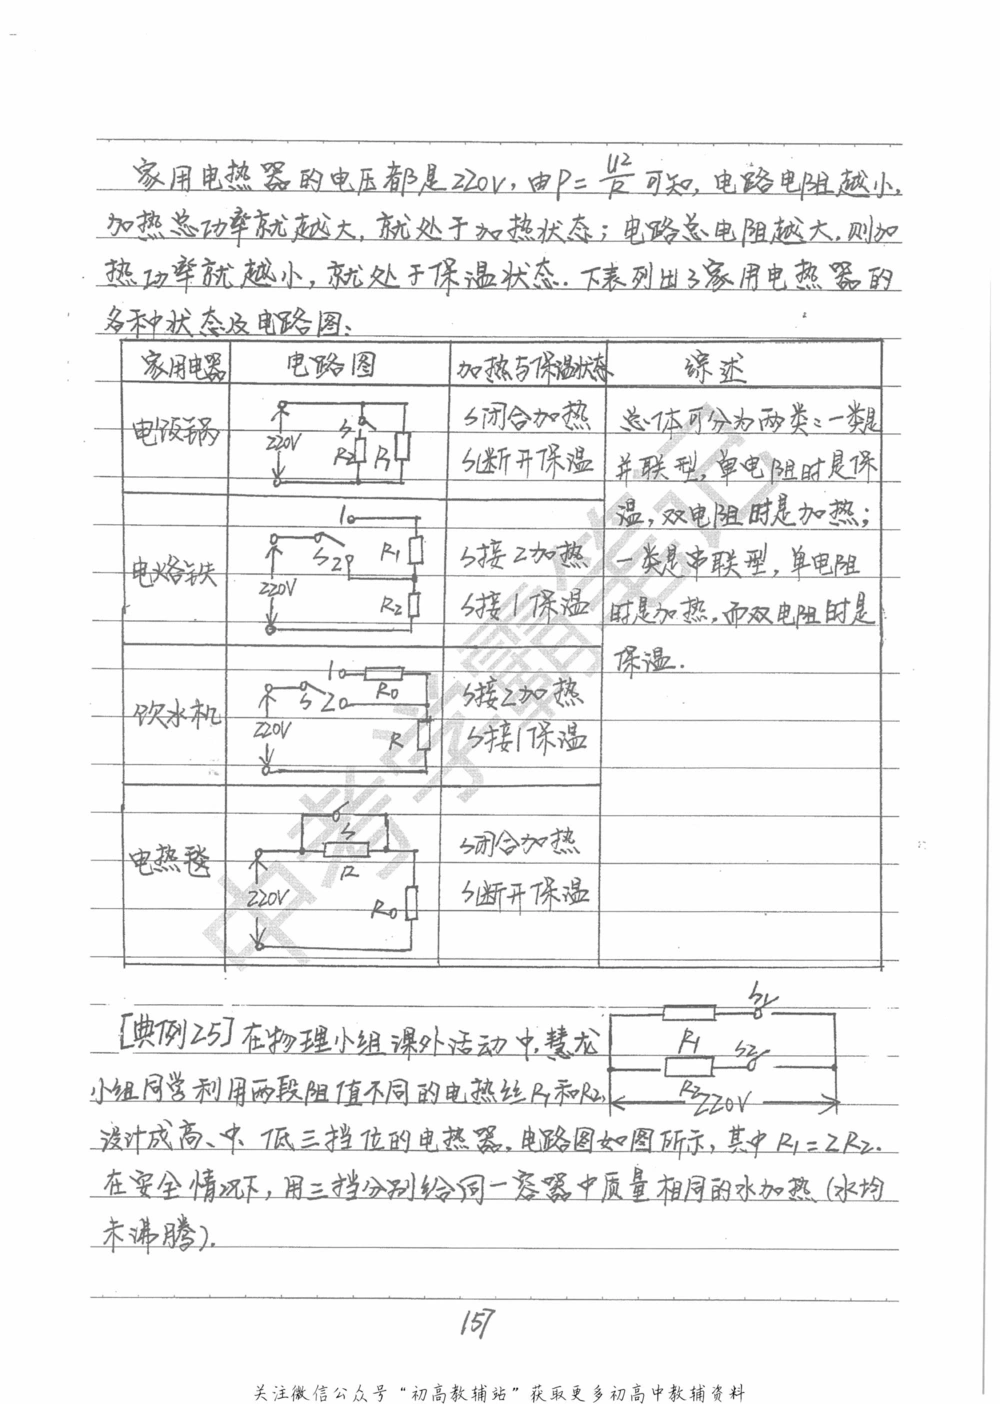 家用电热器的电压都是220V,由P=U²/R可知,电路电阻越小,
加热总功率就越大,就处于加热状态;电路总电阻越大,则加
热功率就越小,就处于保温状态.下表列出了家用电热器的
各种状态及电路图:
家用电器 电路图 加热与保温状态 综述
电饭锅 220V S R2 R1 S闭合加热 S断开保温
总体可分为两类:一类是
并联型,单电阻时是保
温,双电阻时是加热;
一类是串联型,单电阻
时是加热,而双电阻时是
保温.
电烙铁 220V S 1 2 R1 R2 S接2加热 S接1保温
饮水机 220V S 1 2 R0 R S接2加热 S接1保温
电热毯 220V S R R0 S闭合加热 S断开保温
[典例25]在物理小组课外活动中,慧龙
小组同学利用两段阻值不同的电热丝R1和R2,
设计成高、中、低三挡位的电热器,电路图如图所示,其中R1=2R2.
在安全情况下,用三挡分别给同一容器中质量相同的水加热(水均
未沸腾).
R1 S1
R2 S2
220V
157
关注微信公众号“初高教辅站”获取更多初高中教辅资料
中考学霸笔记